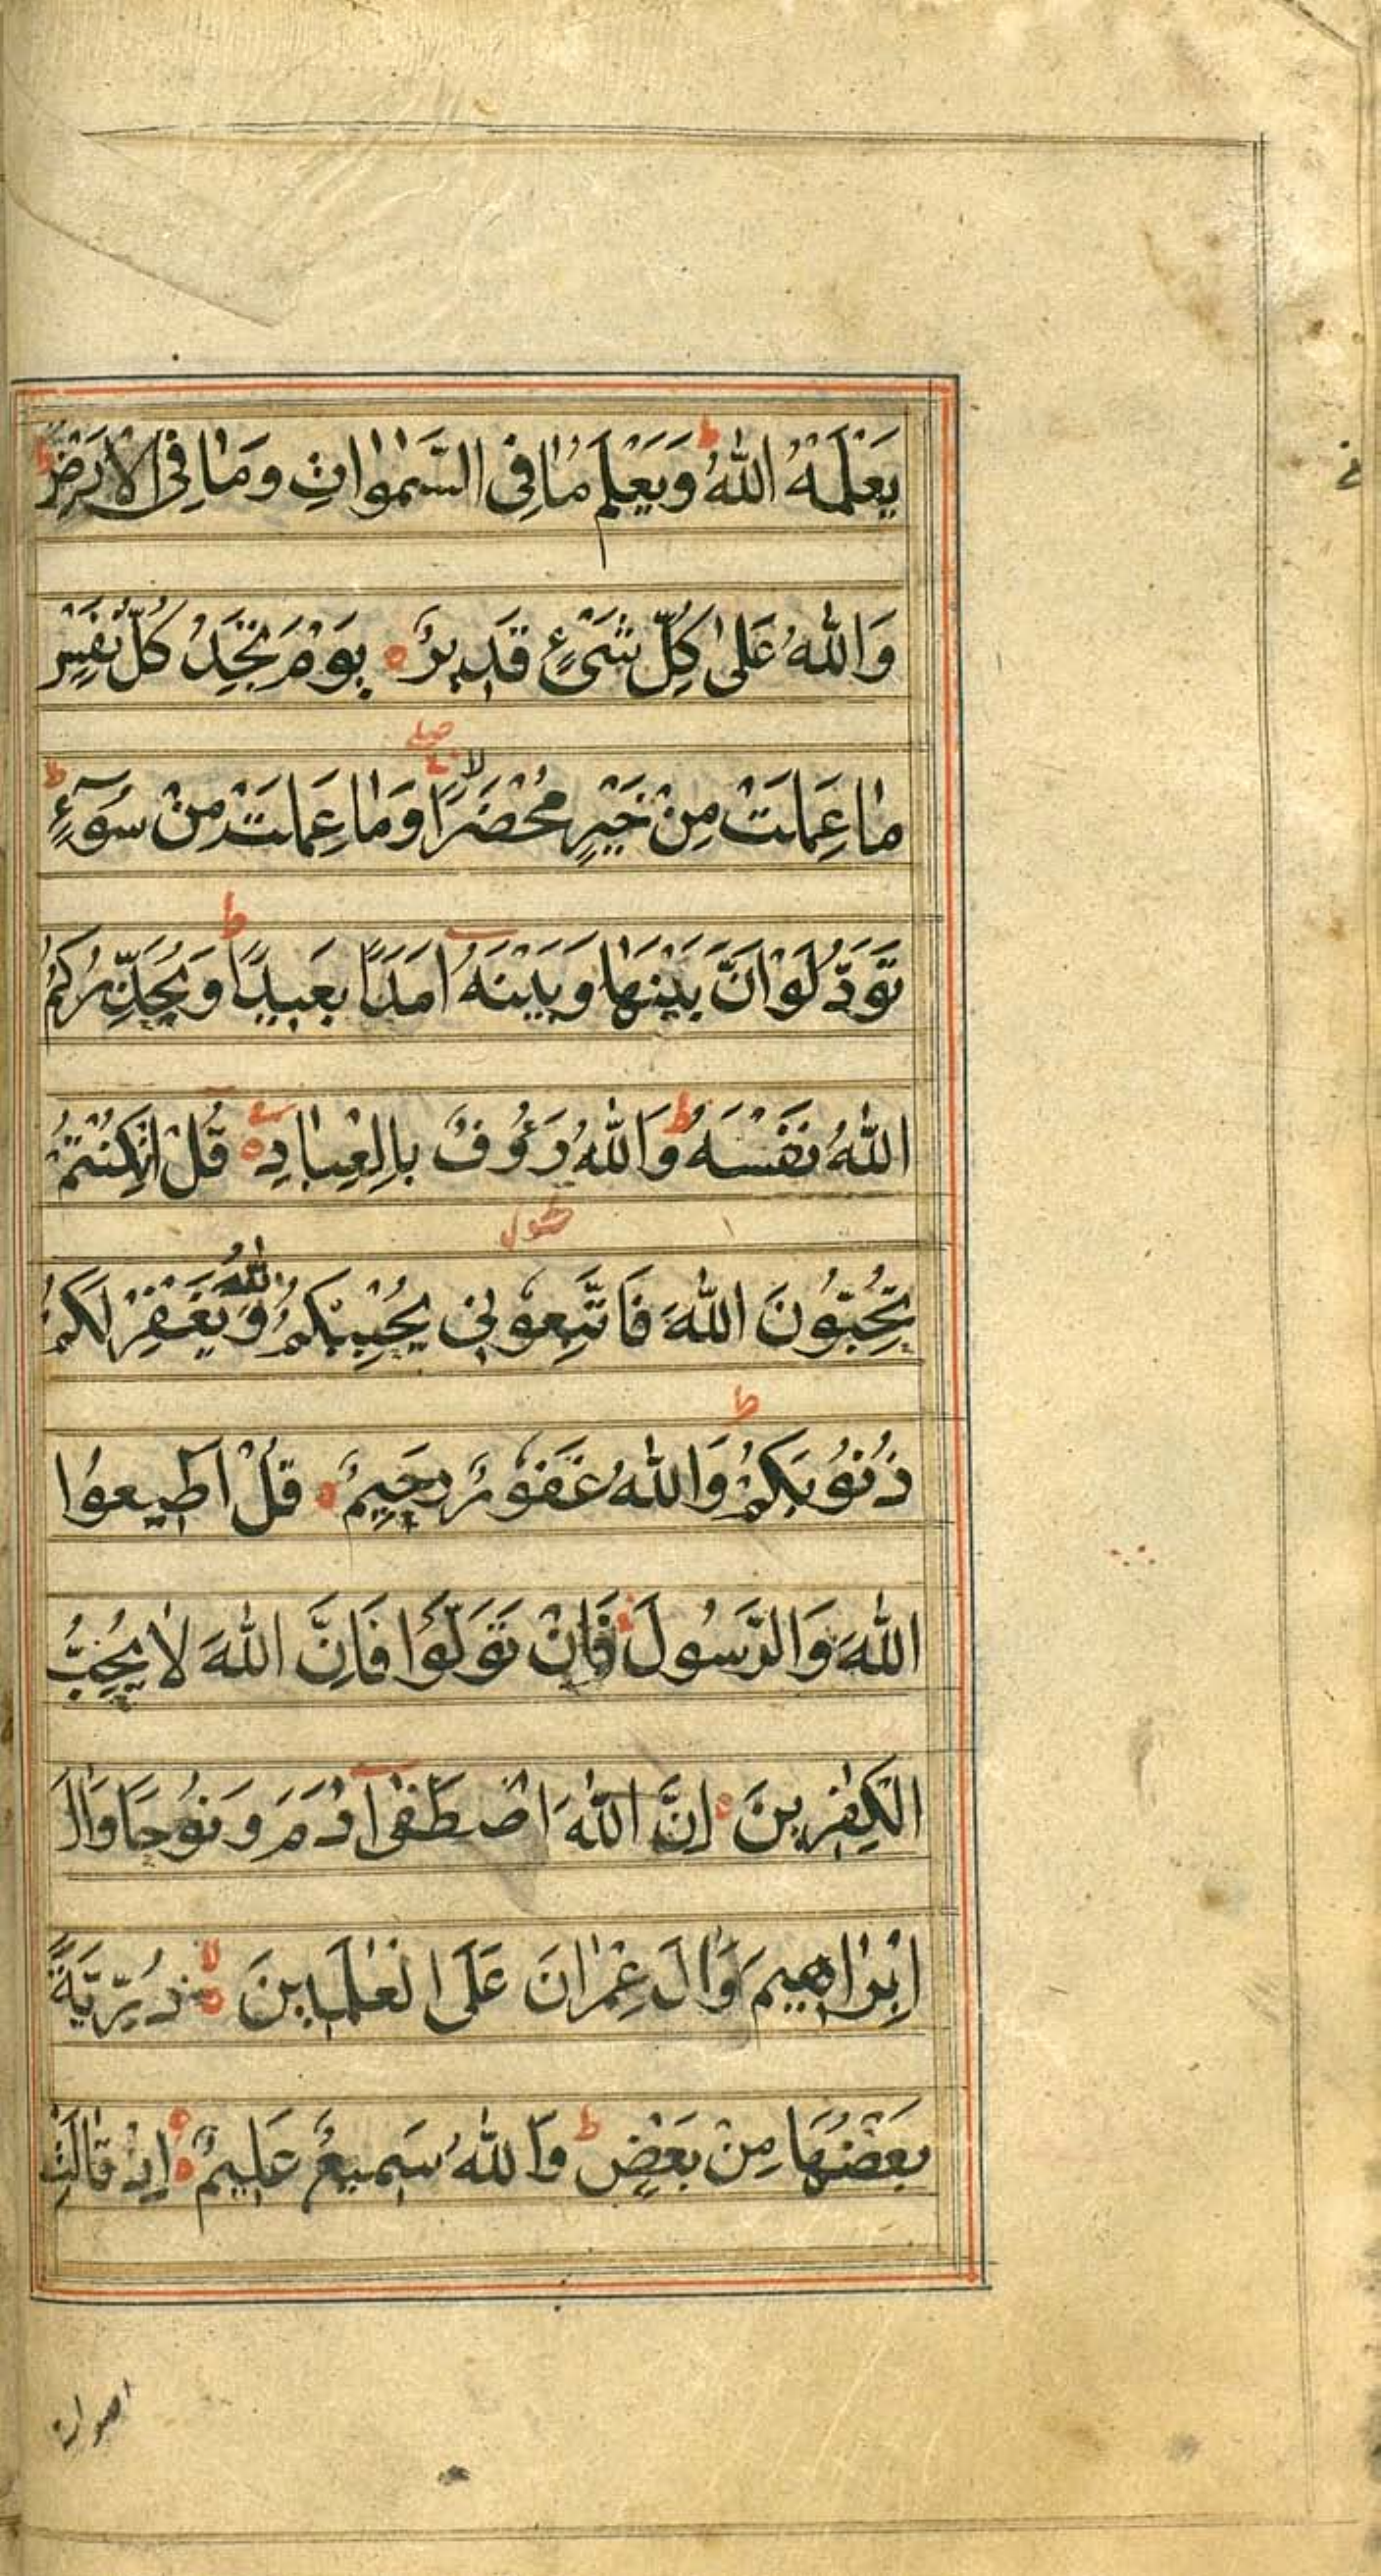 يَعْلَمْهُ اللّٰهُ ط وَيَعْلَمُ مَا فِى السَّمٰوَاتِ وَمَا فِى الْاَرْضِ ط
وَاللّٰهُ عَلىٰ كُلِّ شَىْءٍ قَدِيْرٌ ه يَوْمَ تَجِدُ كُلُّ نَفْسٍ
مَا عَمِلَتْ مِنْ خَيْرٍ مُحْضَرًا لا صلے وَمَا عَمِلَتْ مِنْ سُوْٓءٍ ط
تَوَدُّ لَوْ اَنَّ بَيْنَهَا وَبَيْنَهُ اَمَدًا بَعِيدًا ط وَيُحَذِّرُكُمُ
اللّٰهُ نَفْسَهُ ط وَاللّٰهُ رَؤُفٌ بِالْعِبَادِ ه ع قُلْ اِنْ كُنْتُمْ
تُحِبُّوْنَ اللّٰهَ فَاتَّبِعُوْنِى يُحْبِبْكُمُ اللّٰهُ وَيَغْفِرْ لَكُمْ
ذُنُوْبَكُمْ ط وَاللّٰهُ غَفُوْرٌ رَحِيْمٌ ه قُلْ اَطِيعُوا
اللّٰهَ وَالرَّسُولَ فَاِنْ تَوَلَّوْا فَاِنَّ اللّٰهَ لَا يُحِبُّ
الْكٰفِرِينَ ه اِنَّ اللّٰهَ اصْطَفٰى اٰدَمَ وَنُوْحًا وَاٰلَ
اِبْرَاهِيمَ وَاٰلَ عِمْرَانَ عَلَى الْعٰلَمِينَ لا ه ذُرِّيَّةً
بَعْضُهَا مِنْ بَعْضٍ ط وَاللّٰهُ سَمِيعٌ عَلِيمٌ ه اِذْ قَالَتِ